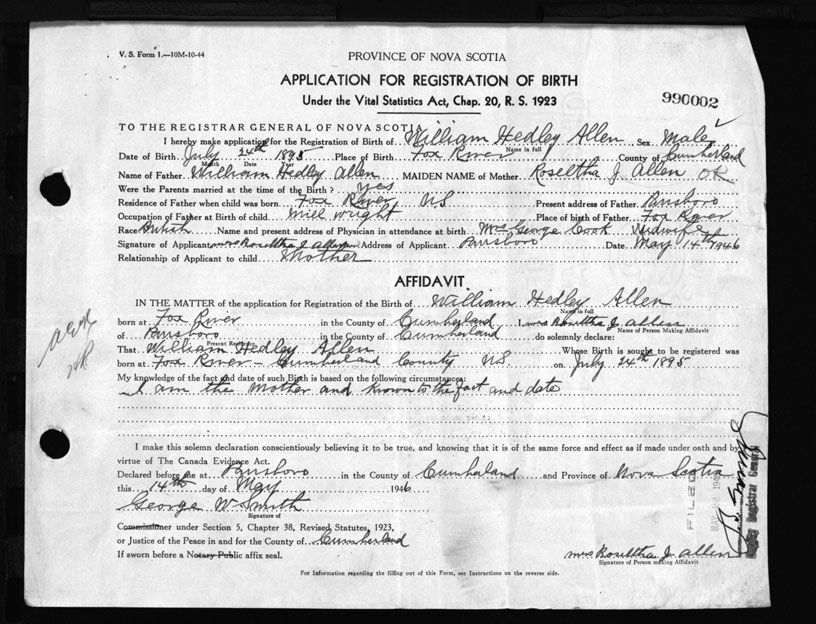 V. S. Form 1.—10M-10-44
PROVINCE OF NOVA SCOTIA
APPLICATION FOR REGISTRATION OF BIRTH
Under the Vital Statistics Act, Chap. 20, R. S. 1923
990002
TO THE REGISTRAR GENERAL OF NOVA SCOTIA
I hereby make application for the Registration of Birth of William Hedley Allen Sex Male
Name in full
Date of Birth July 24th 1895 Place of Birth Fox River County of Cumberland
Month Date Year
Name of Father William Hedley Allen MAIDEN NAME of Mother Roseltha J. Allen OR
Were the Parents married at the time of the Birth? yes
Residence of Father when child was born Fox River NS Present address of Father Parrsboro
Occupation of Father at Birth of child mill wright Place of birth of Father Fox River
Race British Name and present address of Physician in attendance at birth Mrs George Cook Midwife
Signature of Applicant mrs Roseltha J. allen Address of Applicant Parrsboro Date May 14th 1946
Relationship of Applicant to child Mother
AFFIDAVIT
IN THE MATTER of the application for Registration of the Birth of William Hedley Allen
Name in full
born at Fox River in the County of Cumberland I, mrs Roseltha J. allen
Name of Person Making Affidavit
of Parrsboro in the County of Cumberland do solemnly declare:
Present Residence
That William Hedley Allen Whose Birth is sought to be registered was
born at Fox River - Cumberland County NS. on July 24th 1895
My knowledge of the fact and date of such Birth is based on the following circumstances:
I am the Mother and known to the fact and date
I make this solemn declaration conscientiously believing it to be true, and knowing that it is of the same force and effect as if made under oath and by
virtue of The Canada Evidence Act.
Declared before me at Parrsboro in the County of Cumberland and Province of Nova Scotia
this 14th day of May 1946
George W Smith
Signature of
Commissioner under Section 5, Chapter 38, Revised Statutes, 1923,
or Justice of the Peace in and for the County of Cumberland
If sworn before a Notary Public affix seal.
mrs Roseltha J. allen
Signature of Person making Affidavit
For Information regarding the filling out of this Form, see Instructions on the reverse side.
FILED
Deputy Registrar General